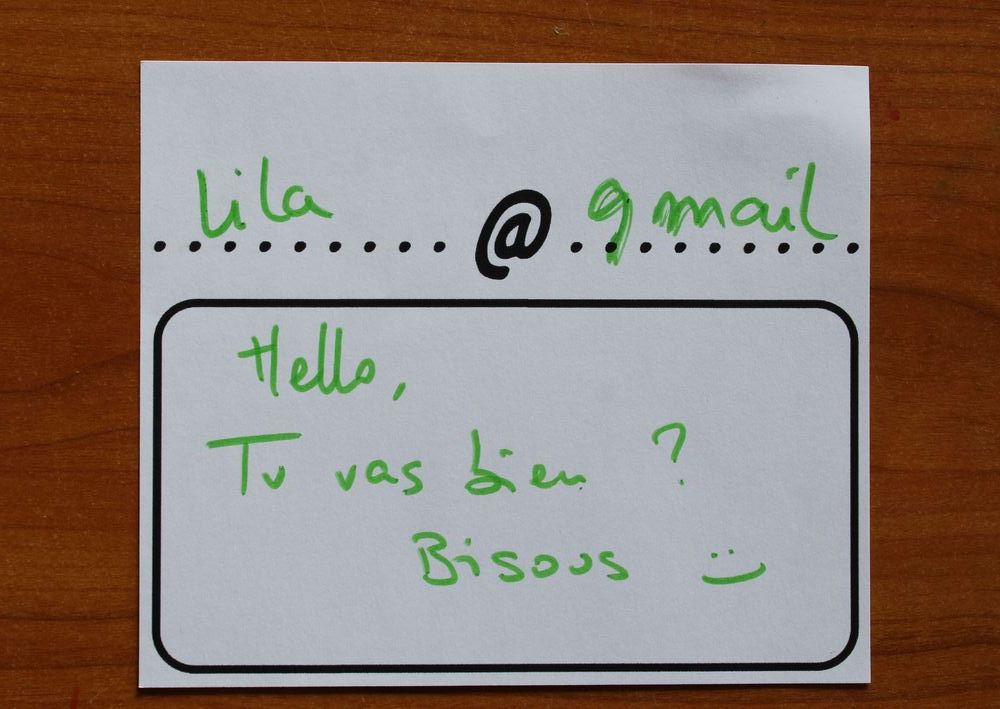 Lila @ gmail
Hello,
Tu vas bien ?
Bisous :)